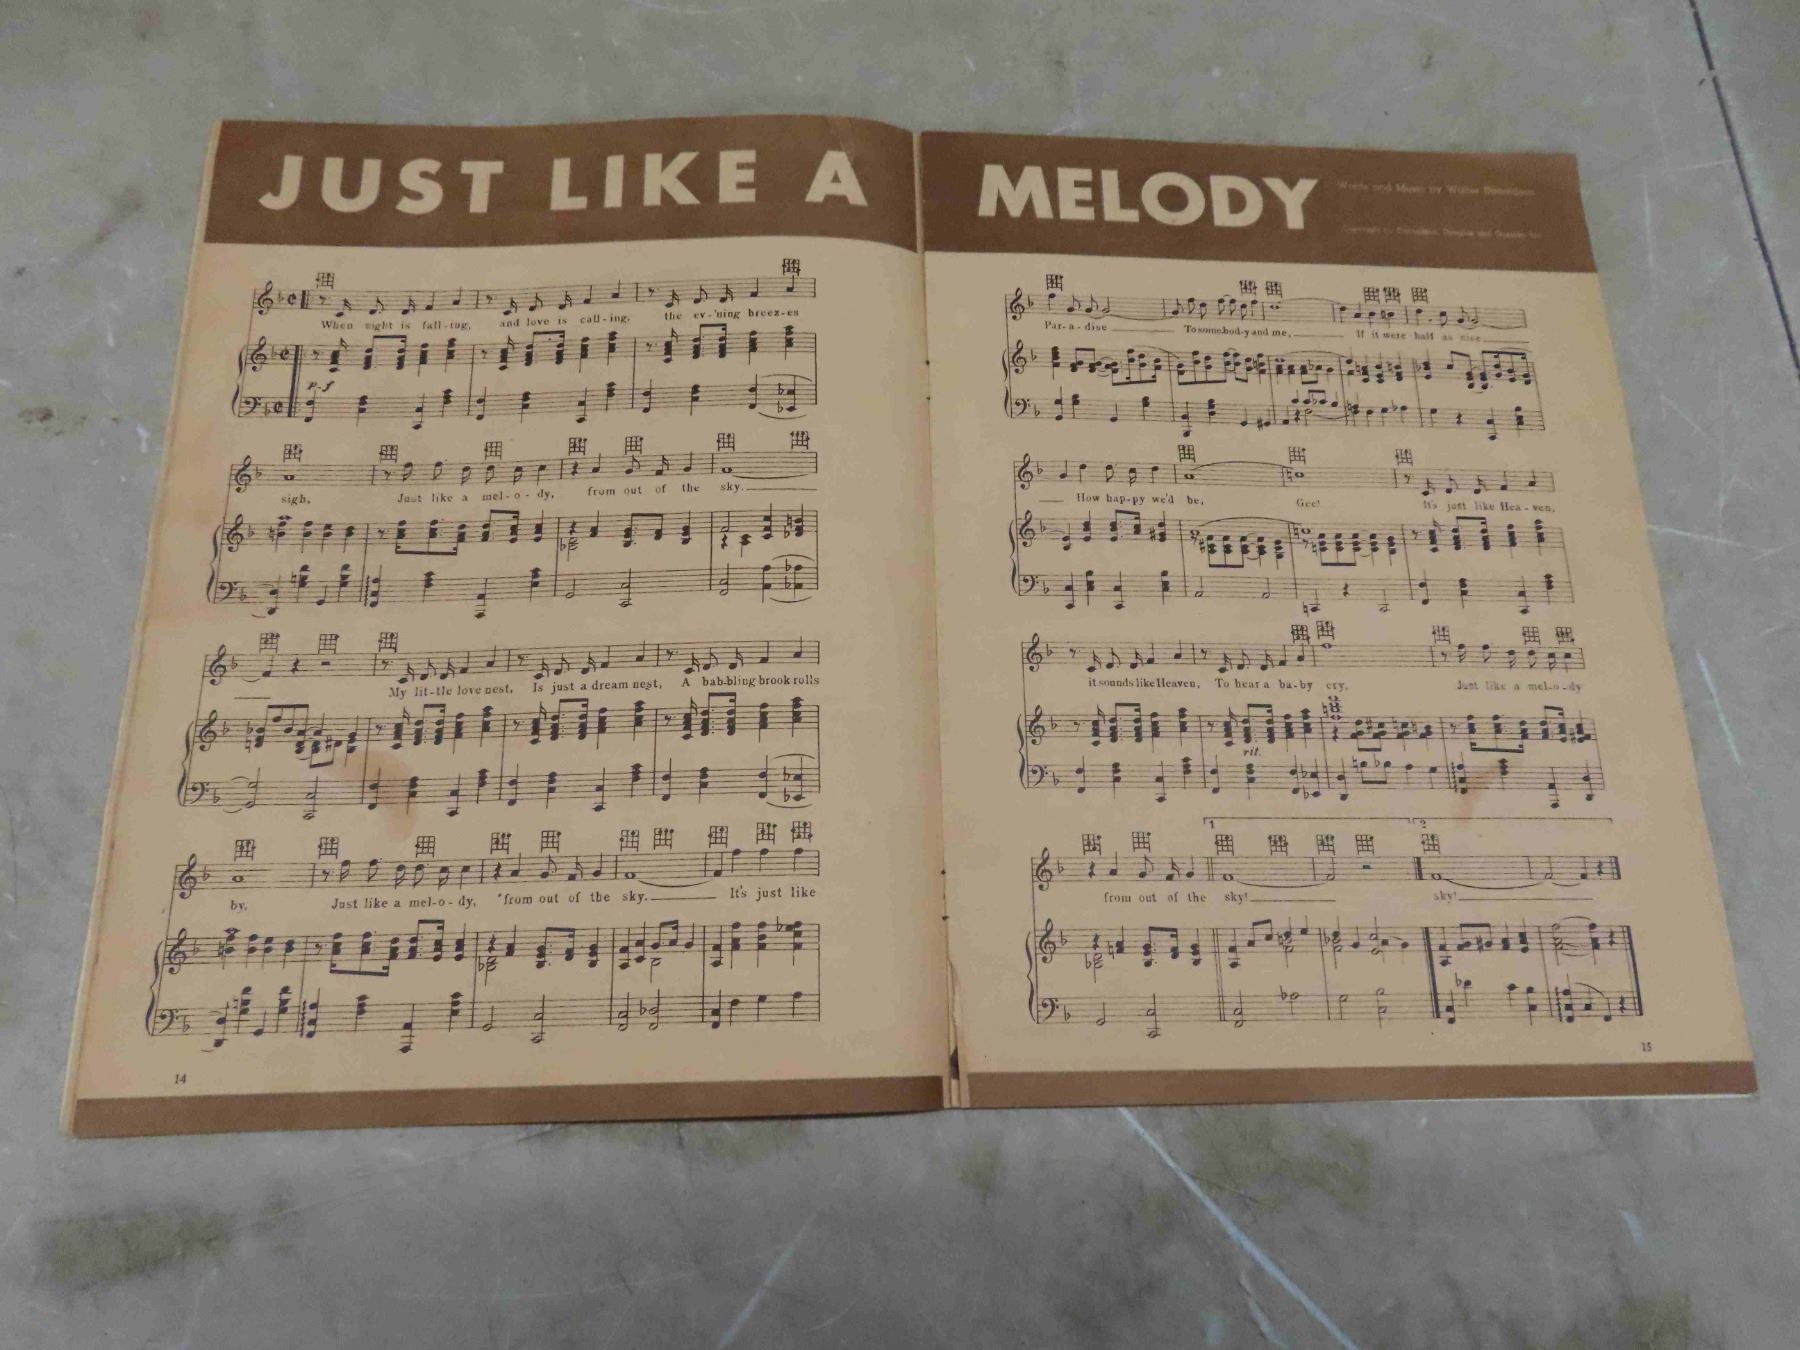 JUST LIKE A MELODY
Words and Music by Walter Donaldson
Copyright by Donaldson, Douglas and Gumble Inc
When night is fall-ing, and love is call-ing, the ev-'ning breez-es
p-f
sigh, Just like a mel-o-dy, from out of the sky.
My lit-tle love nest, Is just a dream nest, A bab-bling brook rolls
by, Just like a mel-o-dy, from out of the sky. It's just like
14
Par-a-dise To some-bod-y and me, If it were half as nice
How hap-py we'd be, Gee! It's just like Hea-ven,
it sounds like Heaven, To hear a ba-by cry, Just like a mel-o-dy
rit.
1 2
from out of the sky! sky!
15